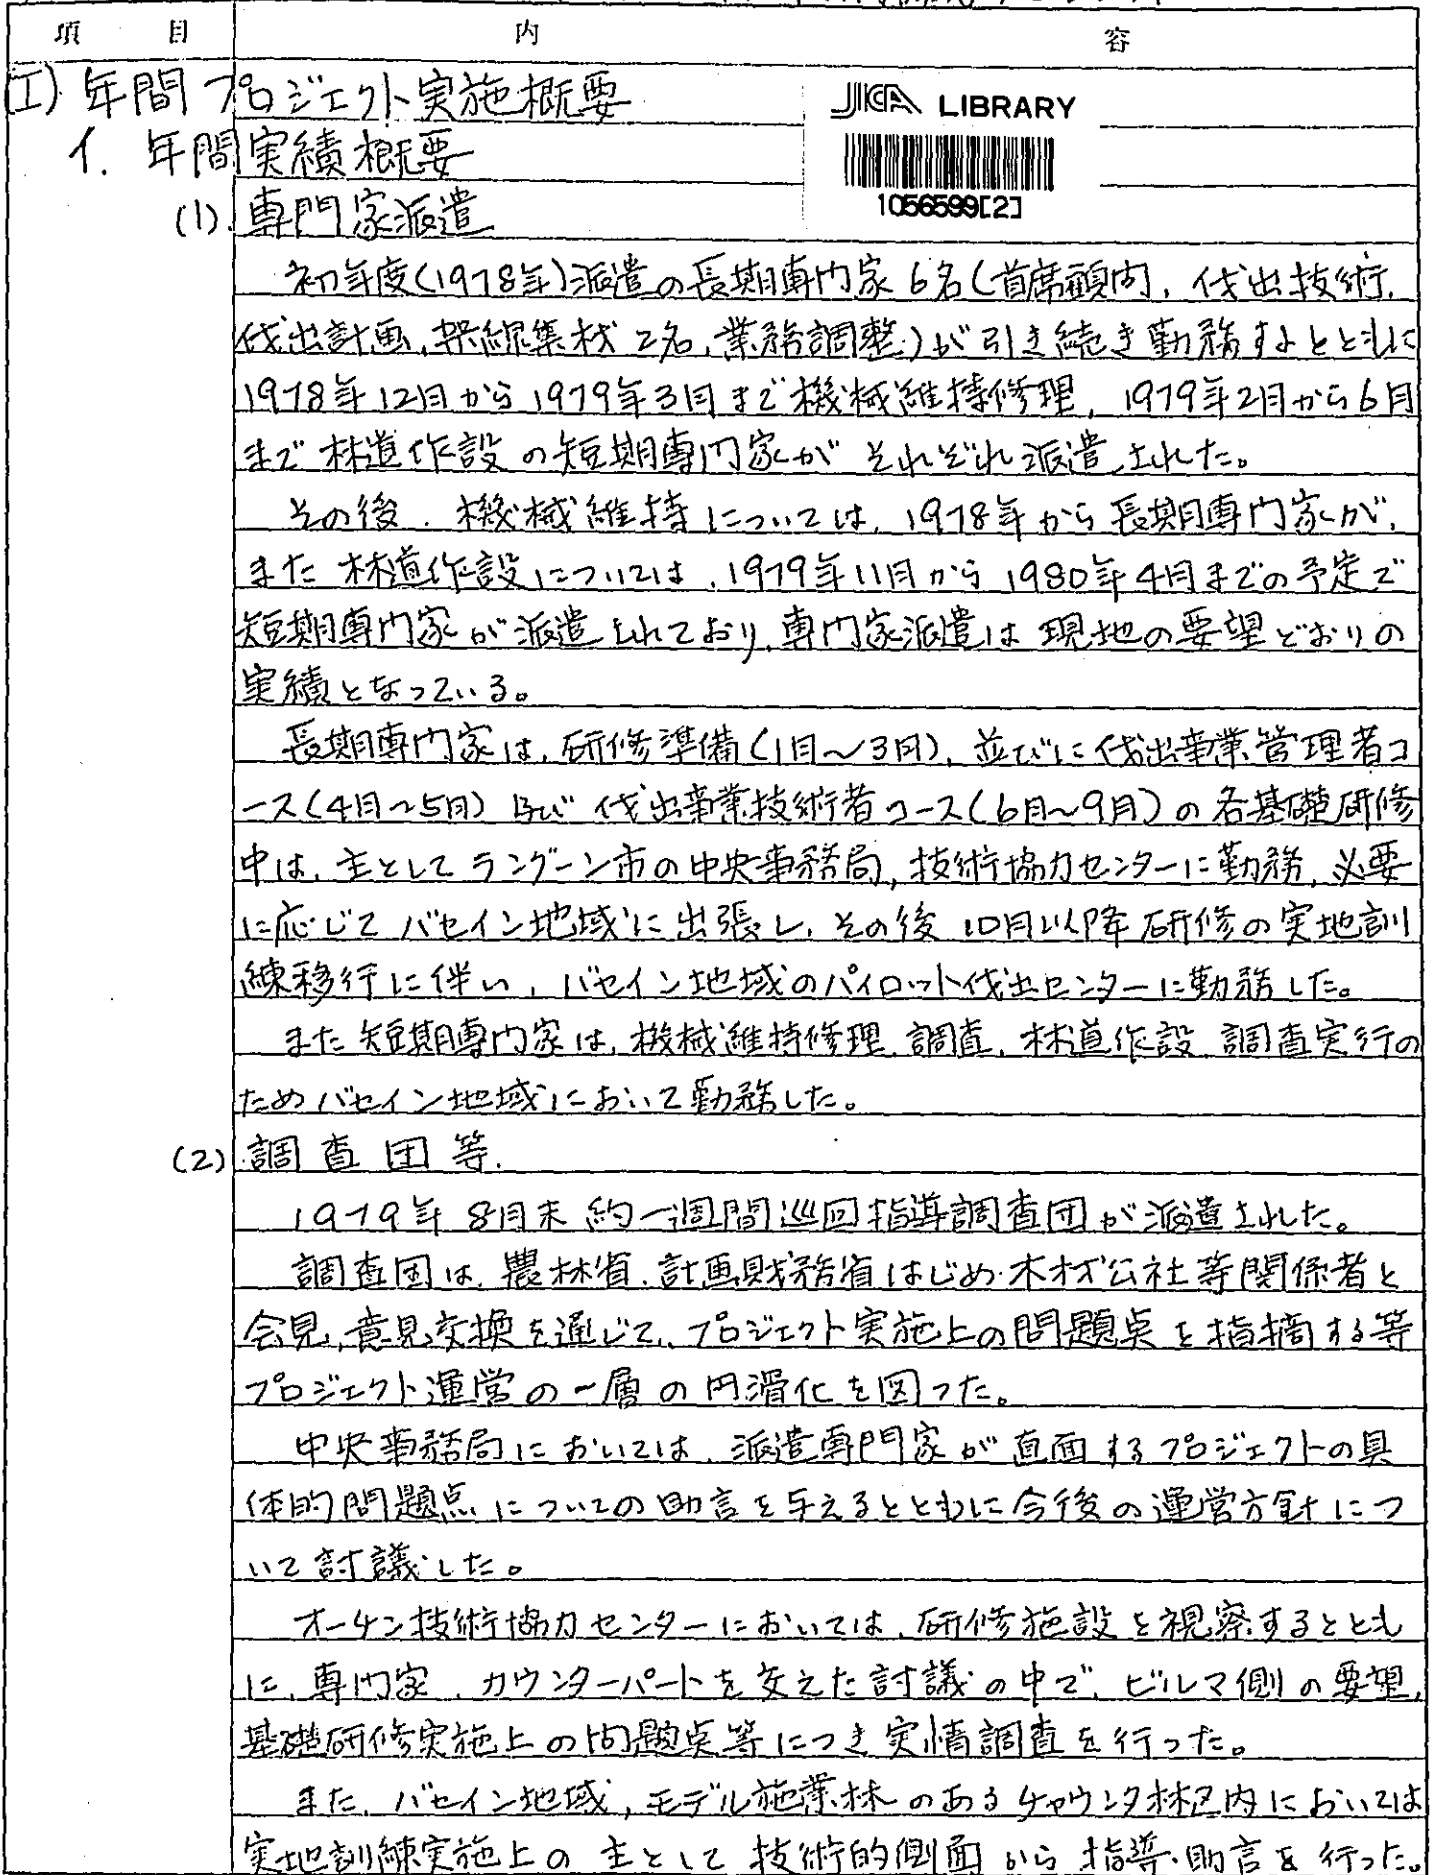 項目 内容
(I) 年間プロジェクト実施概要
JICA LIBRARY
1. 年間実績概要
1056599[2]
(1) 専門家派遣
初年度(1978年)派遣の長期専門家6名(首席顧問、伐出技術、
伐出計画、架線集材2名、業務調整)が引き続き勤務すると��もに
1978年12月から1979年3月まで機械維持修理、1979年2月から6月
まで林道作設の短期専門家がそれぞれ派遣された。
その後、機械維持については、1978年から長期専門家が、
また林道作設については、1979年11月から1980年4月までの予定で
短期専門家が派遣されており、専門家派遣は現地の要望どおりの
実績となっている。
長期専門家は、研修準備(1月〜3月)、並びに伐出事業管理者コ
ース(4月〜5月)及び伐出事業技術者コース(6月〜9月)の各基礎研修
中は、主としてラングーン市の中央事務局、技術協力センターに勤務、必要
に応じてバセイン地域に出張し、その後10月以降研修の実地訓
練移行に伴い、バセイン地域のパイロット伐出センターに勤務した。
また短期専門家は、機械維持修理、調査、林道作設、調査実行の
ためバセイン地域において勤務した。
(2) 調査団等.
1979年8月末約一週間巡回指導調査団が派遣された。
調査団は、農林省、計画財務省はじめ木材公社等関係者と
会見、意見交換を通じて、プロジェクト実施上の問題点を指摘する等
プロジェクト運営の一層の円滑化を図った。
中央事務局においては、派遣専門家が直面するプロジェクトの具
体的問題点についての助言を与えるとともに今後の運営方針につ
いて討議した。
オーケン技術協力センターにおいては、研修施設を視察するととも
に、専門家、カウンターパートを交えた討議の中で、ビルマ側の要望、
基礎研修実施上の問題点等につき実情調査を行った。
また、バセイン地域、モデル施業林のあるチャウンタ林区内においては
実地訓練実施上の主として技術的側面から指導・助言を行った。